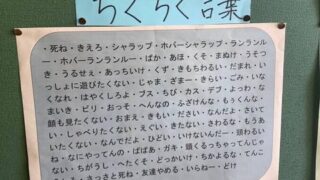 ちくちく言葉
・死ね・きえろ・シャラップ・ホバーシャラップ・ランランルー
・ホバーランランルー・ばか・あほ・くそ・まぬけ・うそつ
き・うるせぇ・あっちいけ・くず・きもちわるい・だまれ・い
っしょに遊びたくない・じゃま・ざまー・きらい・ごみ・いな
くなれ・はやくしろよ・ブス・ちび・カス・デブ・よっわ・な
まいき・ビリ・おっそ・へんなの・ふざけんな・
顔も見たくない・おまえ・きもい・ださい・なんだよ・さいて
い・しゃべりたくない・えぐい・きたない・さわるな・もうあ
いたくない・なんでだよ・ひどい・いけないんだー・頭わるい
ね・なにやってんの・ばばあ・ガキ・頭くるっちゃってんじゃ
ない・ちがうし・へたくそ・どっかいけ・ちかよるな・てんこ
・さっさと死ね・友達やめる・いらねー・どけ